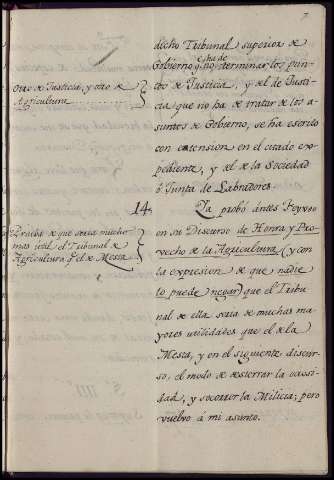 7
dicho Tribunal superior de
Gobierno q.e ha de no determinar los pun-
tos de Justicia, y el de Justi-
cia que no ha de tratar de los a-
suntos de Gobierno, se ha escrito
con extension en el citado ex-
pediente, y el de la Sociedad
ó Junta de Labradores.
Otro de Justicia, y otro de
Agricultura
14.
La probó ántes Feyjoo
en su Discurso de Honra y Pro-
vecho de la Agricultura (y con
la expresion de que nadie
lo puede negar) que el Tribu-
nal de ella sería de muchas ma-
yores utilidades que el de la
Mesta, y en el siguiente discur-
so, el modo de desterrar la ociosi-
dad, y socorrer la Milicia; pero
vuelvo á mi asunto.
Prueba de que sería mucho
mas util el Tribunal de
Agricultura q.e el de Mesta